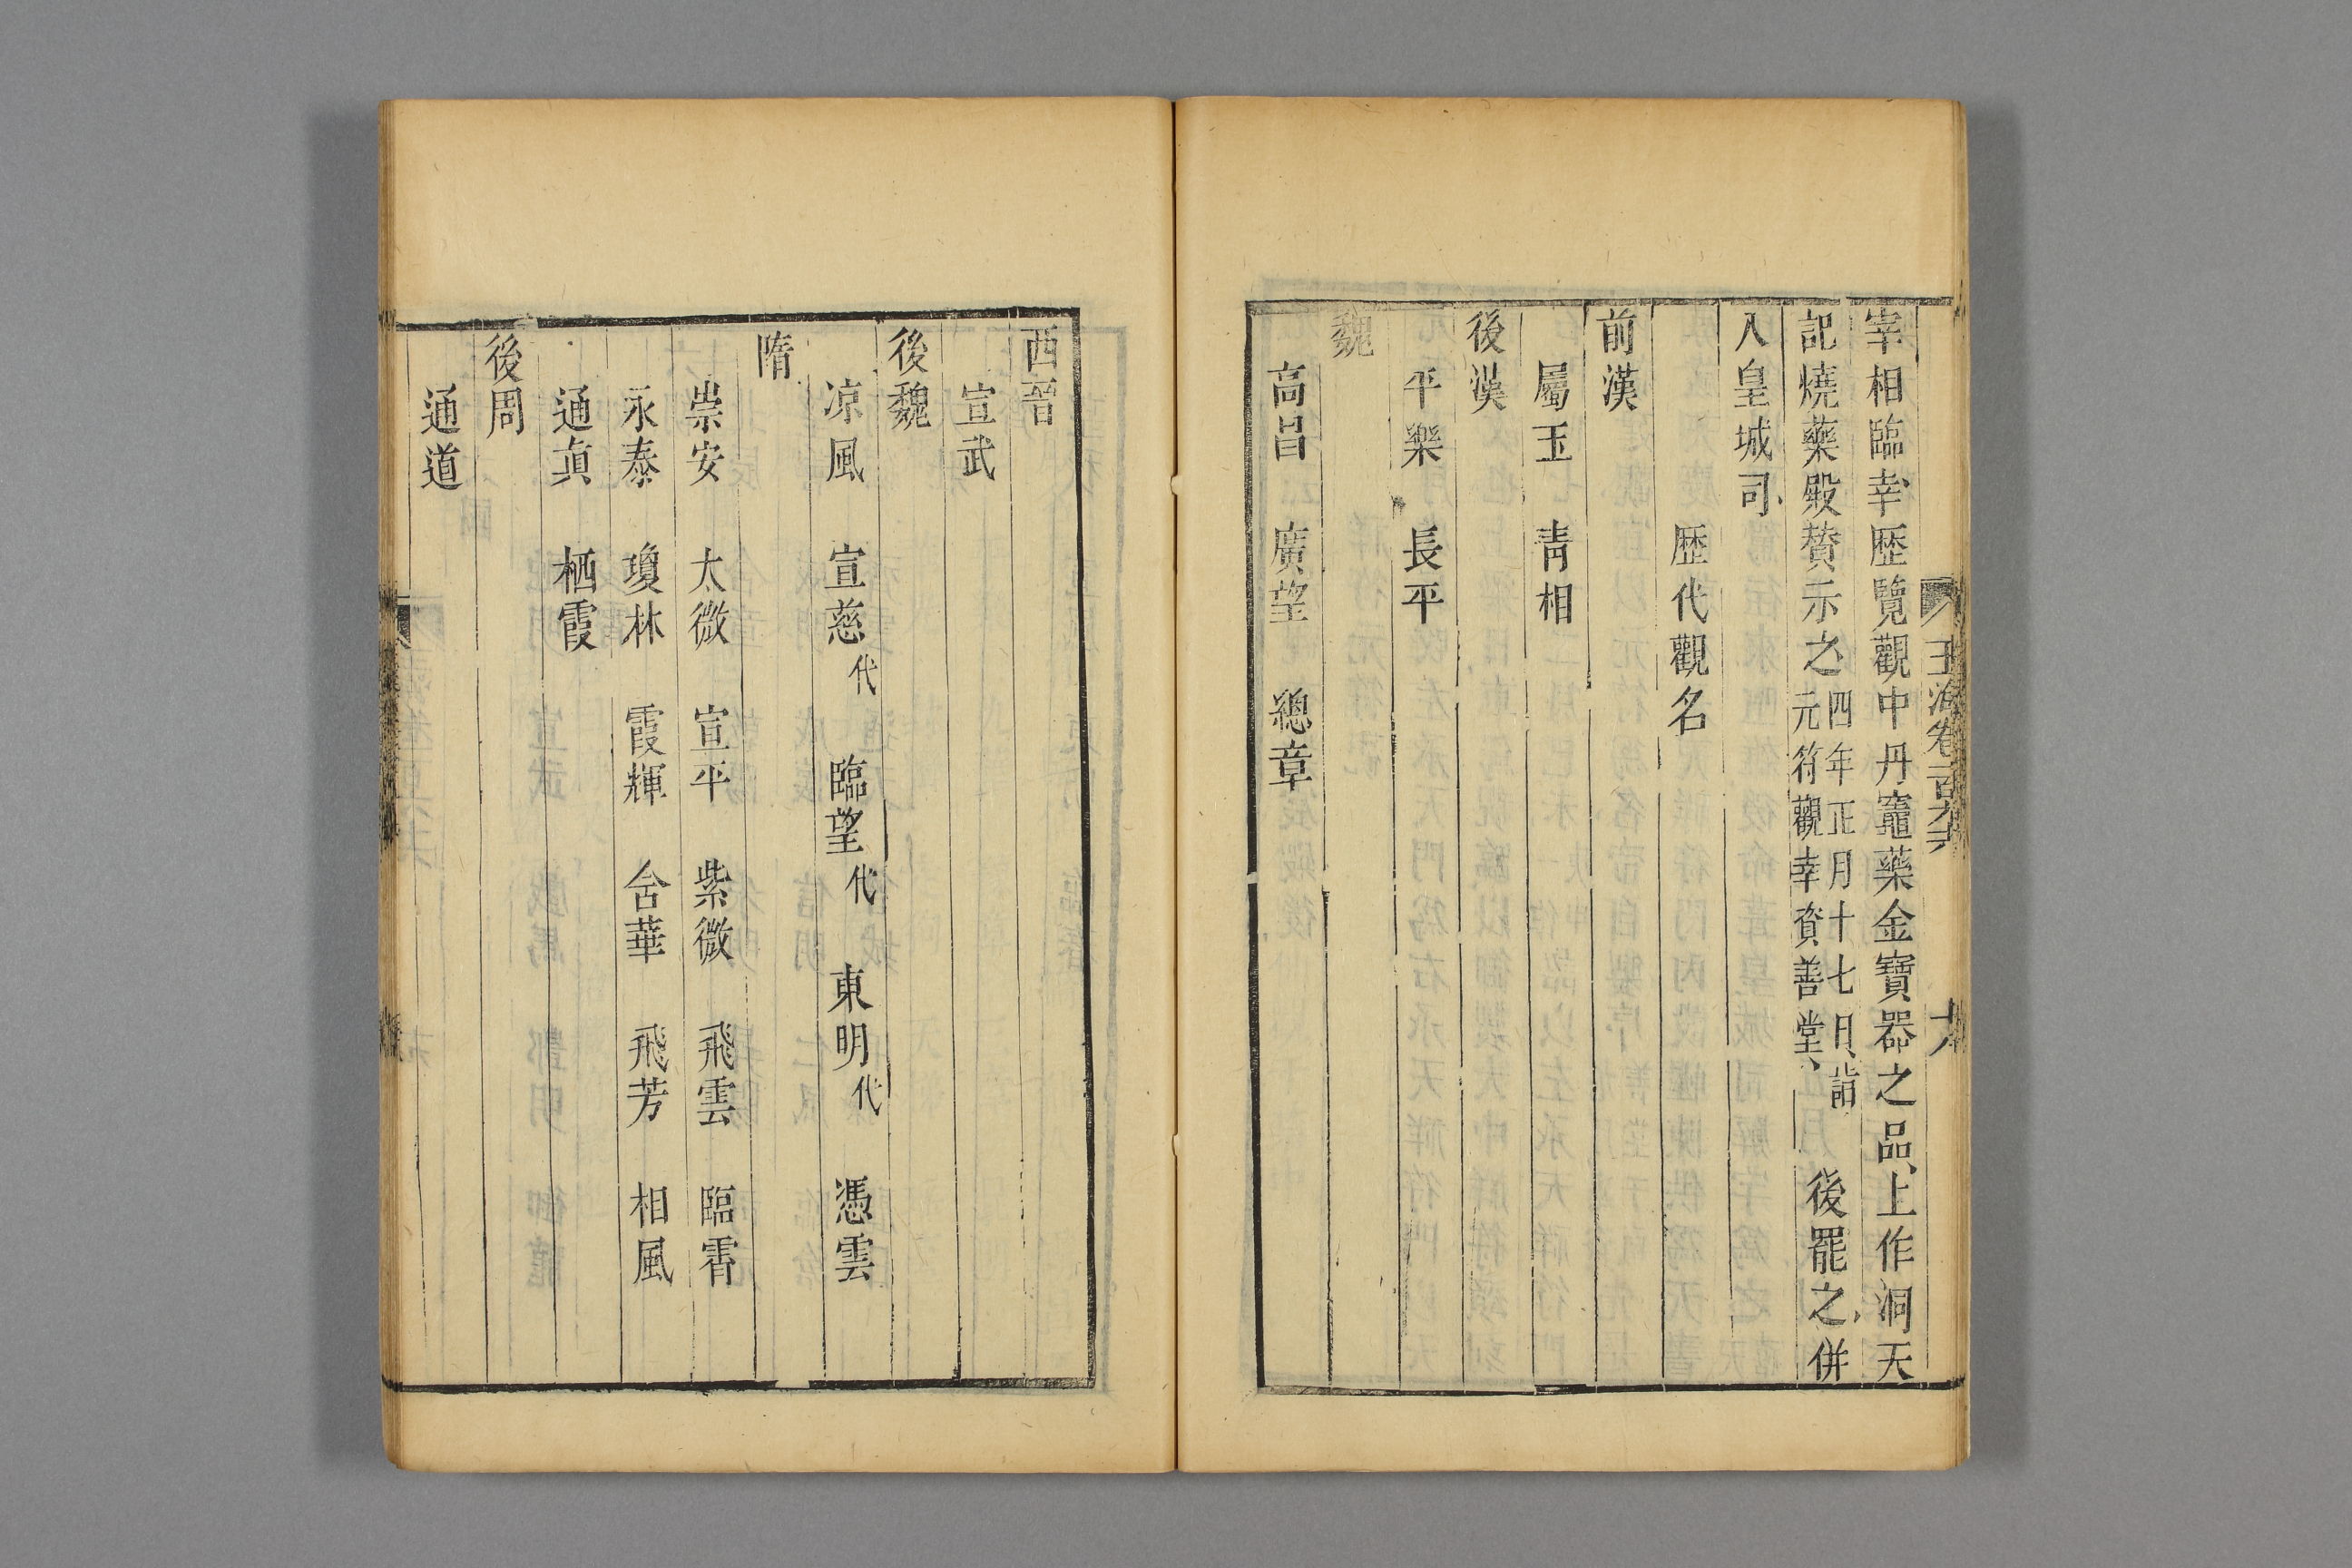 玉海卷一百六十六
十八
宰相臨幸歷覽觀中丹竈藥金寶器之品上作洞天
記燒藥殿賛示之四年正月十七日詣元符觀幸資善堂後罷之併
入皇城司
歷代觀名
前漢
屬玉 青相
後漢
平樂 長平
魏
高昌 廣望 總章
西晉
宣武
後魏
凉風 宣慈代 臨望代 東明代 憑雲
隋
崇安 太微 宣平 紫微 飛雲 臨霄
永泰 瓊林 霞輝 含華 飛芳 相風
通眞 栖霞
後周
通道